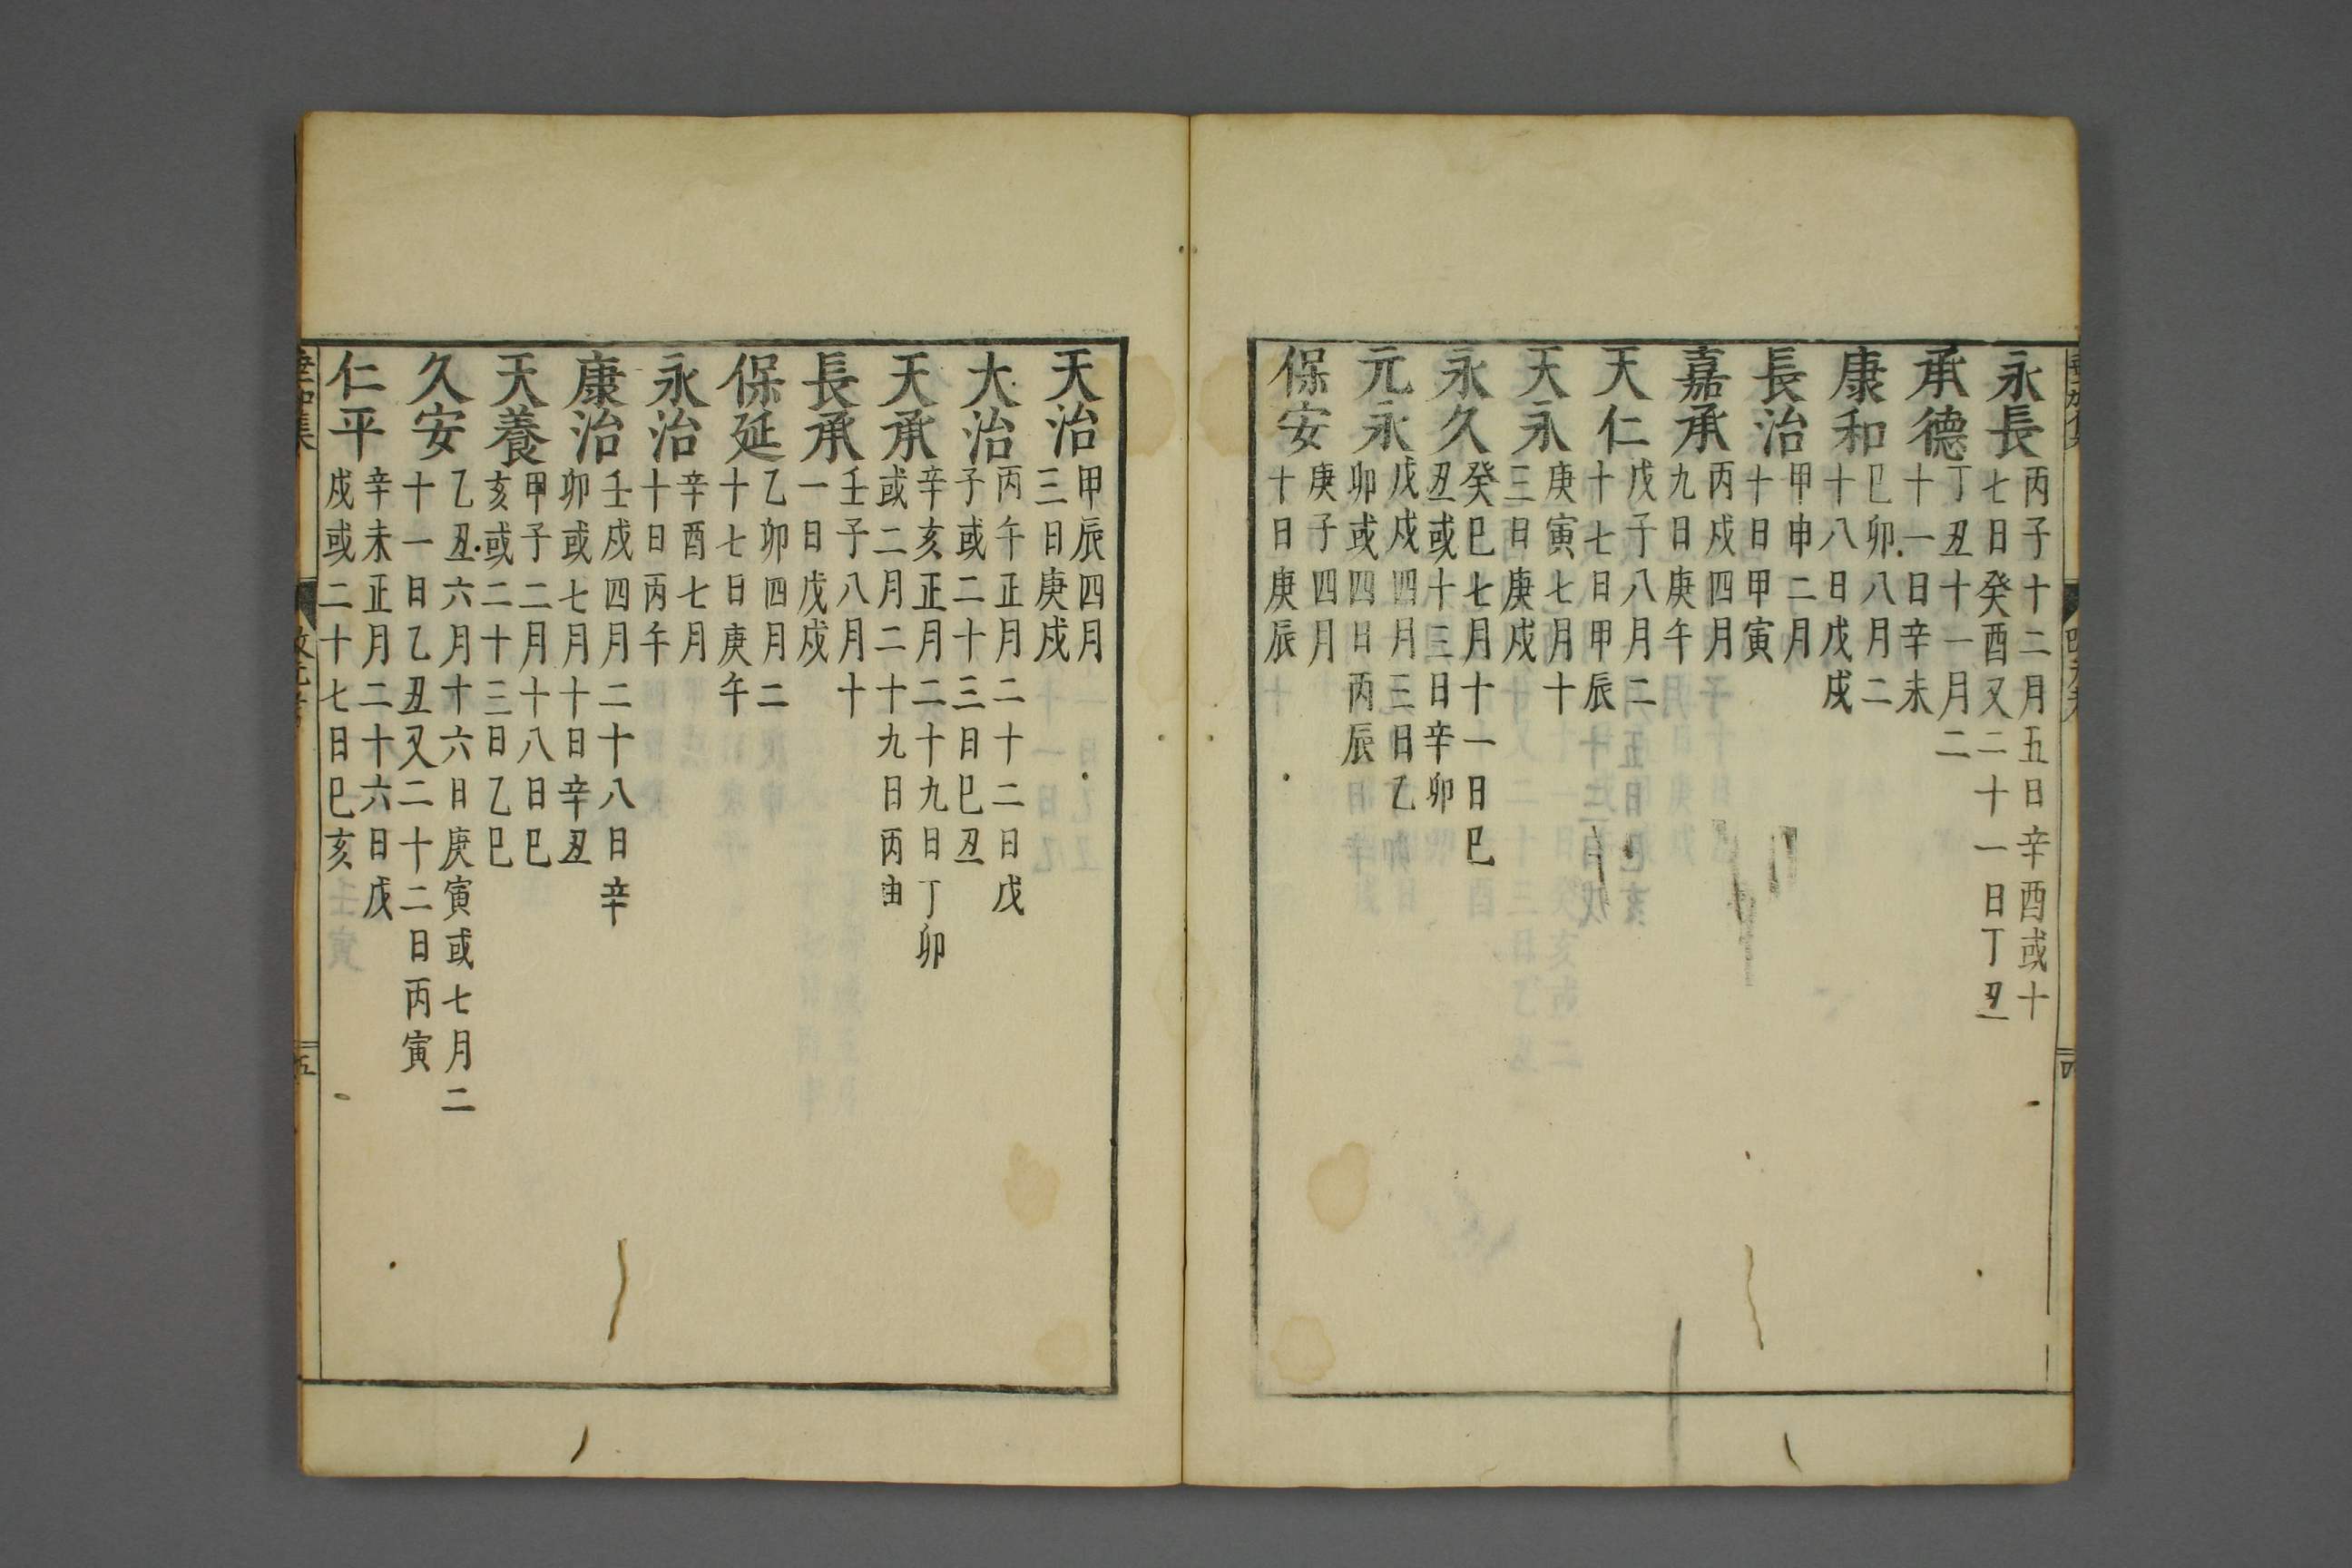 永長丙子十二月五日辛酉或十
七日癸酉又二十一日丁丑
承德丁丑十一月二
十一日辛未
康和巳卯八月二
十八日戊戌
長治甲申二月
十日甲寅
嘉承丙戌四月
九日庚午
天仁戊子八月二
十七日甲辰
天永庚寅七月十
三日庚戌
永久癸巳七月十一日巳
丑或十三日辛卯
元永戊戌四月三日乙
卯或四日丙辰
保安庚子四月
十日庚辰
天治甲辰四月
三日庚戌
大治丙午正月二十二日戊
子或二十三日巳丑
天承辛亥正月二十九日丁卯
或二月二十九日丙申
長承壬子八月十
一日戊戌
保延乙卯四月二
十七日庚午
永治辛酉七月
十日丙午
康治壬戌四月二十八日辛
卯或七月十日辛丑
天養甲子二月十八日巳
亥或二十三日乙巳
久安乙丑六月十六日庚寅或七月二
十一日乙丑又二十二日丙寅
仁平辛未正月二十六日戊
戌或二十七日巳亥
五